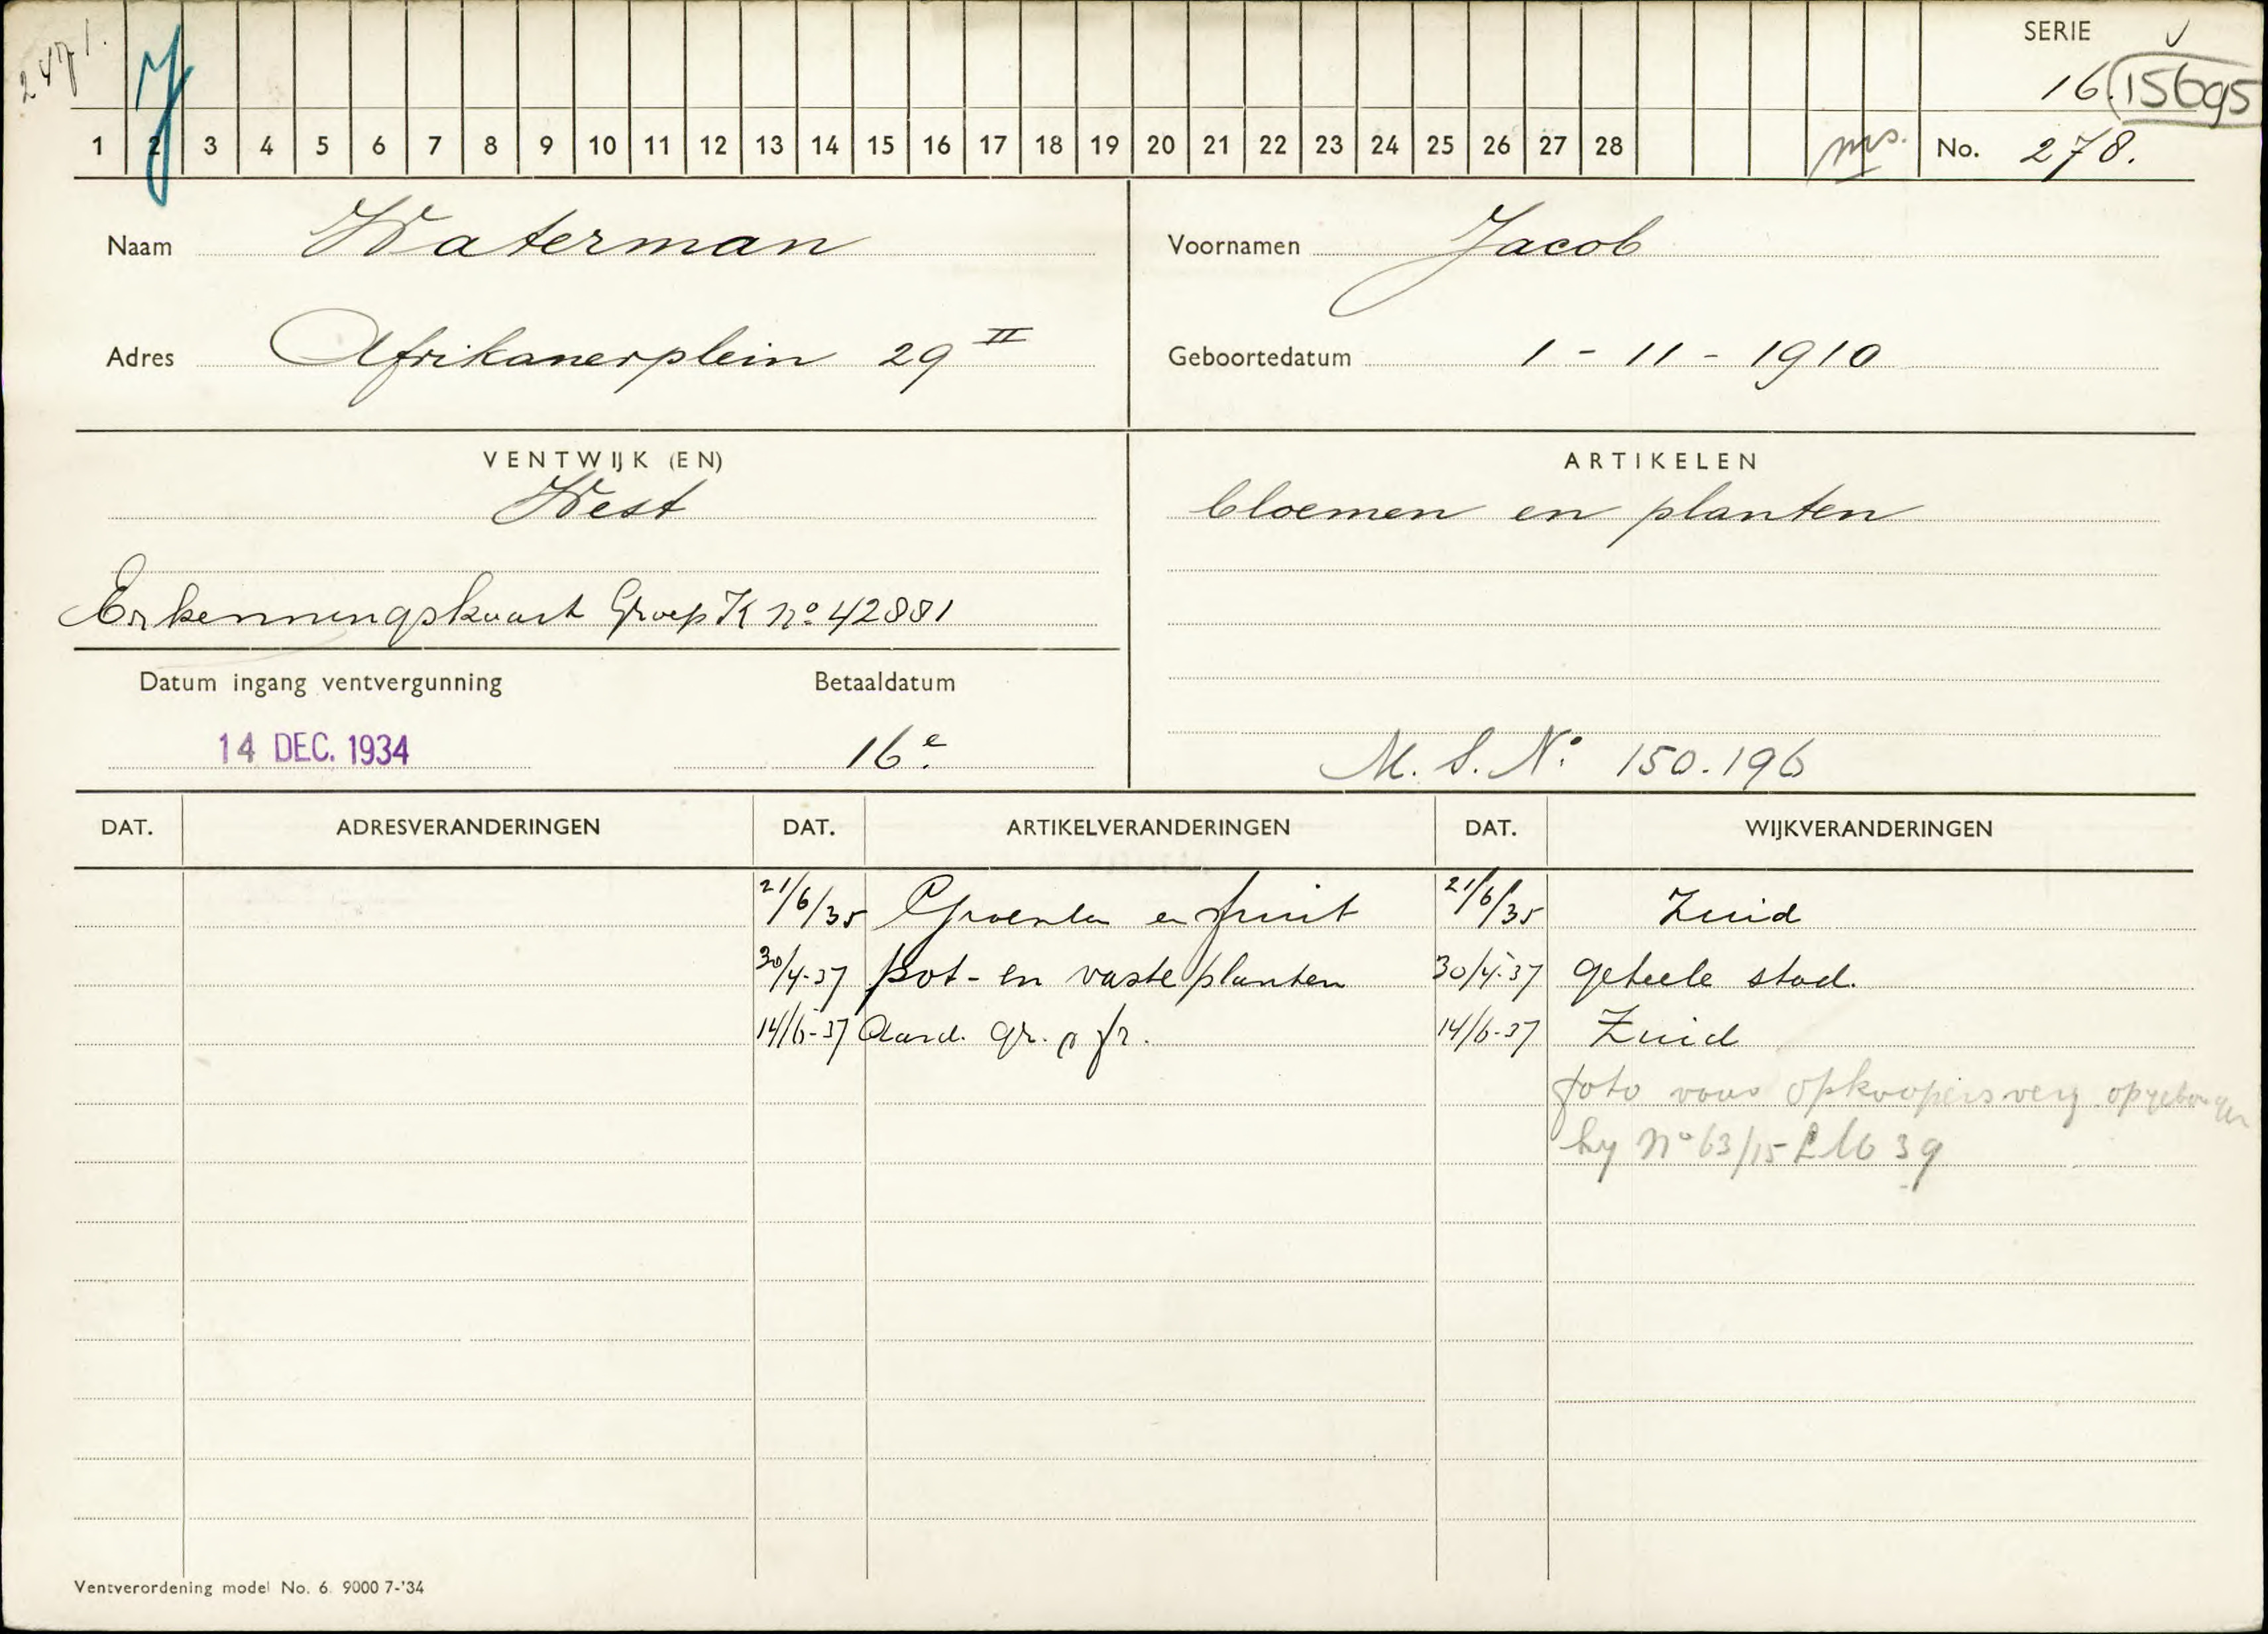 2471.
J
SERIE
16. 15695
1 2 3 4 5 6 7 8 9 10 11 12 13 14 15 16 17 18 19 20 21 22 23 24 25 26 27 28
ms.
No. 278.
Naam Waterman
Voornamen Jacob
Adres Afrikanerplein 29 II
Geboortedatum 1 - 11 - 1910
VENTWIJK (EN)
West
Erkenningskaart Groep K no 42881
ARTIKELEN
bloemen en planten
Datum ingang ventvergunning
14 DEC. 1934
Betaaldatum
16e.
M. S. No 150.196
DAT. ADRESVERANDERINGEN DAT. ARTIKELVERANDERINGEN DAT. WIJKVERANDERINGEN
21/6/35 Groenten en fruit 21/6/35 Zuid
30/4-37 pot- en vaste planten 30/4-37 geheele stad.
14/6-37 Aard. gr. fr. 14/6-37 Zuid
foto voor opkoopersverg opgeborgen
by No 63/15 LM 39
Ventverordening model No. 6. 9000 7-'34